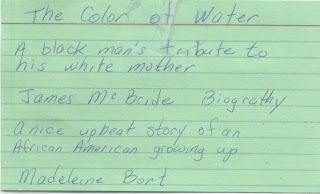 The Color of Water
A black man's tribute to
his white mother
James McBride Biograthy
a nice upbeat story of an
African American growing up
Madeleine Bort